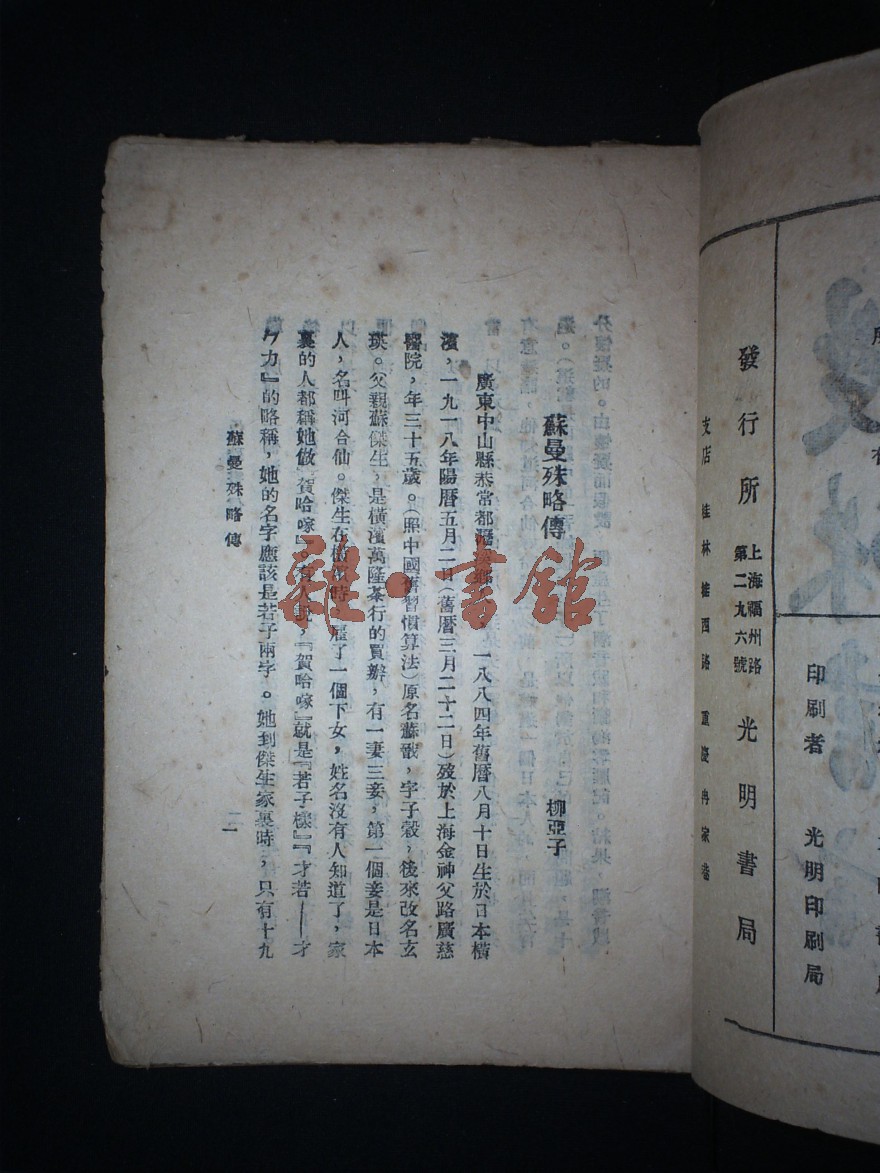 發行所
上海福州路
第二九六號
光明書局
支店
桂林桂西路
重慶冉家巷
印刷者
光明印刷局
蘇曼殊略傳
柳亞子
廣東中山縣恭常都瀝溪鄉人，一八八四年舊曆八月十日生於日本橫
濱，一九一八年陽曆五月二日（舊曆三月二十二日）歿於上海金神父路廣慈
醫院，年三十五歲。（照中國舊習慣算法）原名蘇戩，字子穀，後來改名玄
瑛。父親蘇傑生，是橫濱萬隆茶行的買辦，有一妻三妾，第一個妾是日本
人，名叫河合仙。傑生在橫濱時，雇了一個下女，姓名沒有人知道了，家
裏的人都稱她做『賀哈嗦』。有人說，『賀哈嗦』就是『若子樣』『才若——才
ㄅ力』的略稱，她的名字應該是若子兩字。她到傑生家裏時，只有十九
蘇曼殊略傳
一
雜·書館